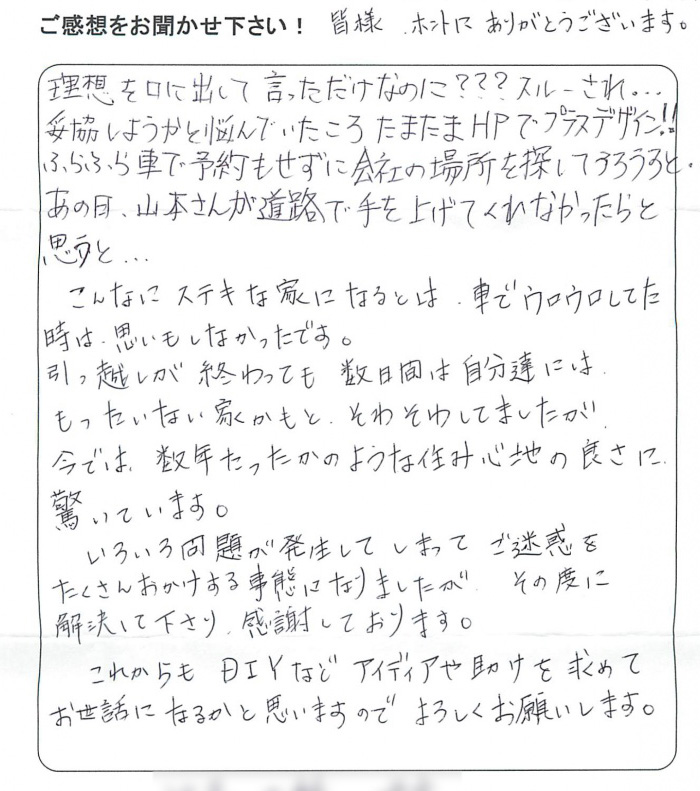 ご感想をお聞かせ下さい！ 皆様、ホントにありがとうございます。
理想を口に出して言っただけなのに？？？スルーされ…
妥協しようかと悩んでいたころ たまたまHPでプラスデザイン!!
ふらふら車で予約もせずに会社の場所を探してうろうろと・
あの日、山本さんが道路で手を上げてくれなかったらと
思うと…
こんなにステキな家になるとは、車でウロウロしてた
時は、思いもしなかったです。
引っ越しが 終わっても 数日間は自分達には、
もったいない家かもと、そわそわしてましたが、
今では、数年たったかのような住み心地の良さに、
驚いています。
いろいろ問題が発生してしまって ご迷惑を
たくさんおかけする事態になりましたが、その度に
解決して下さり、感謝しております。
これからも DIYなど アイディアや助けを求めて
お世話になるかと思いますので よろしくお願いします。